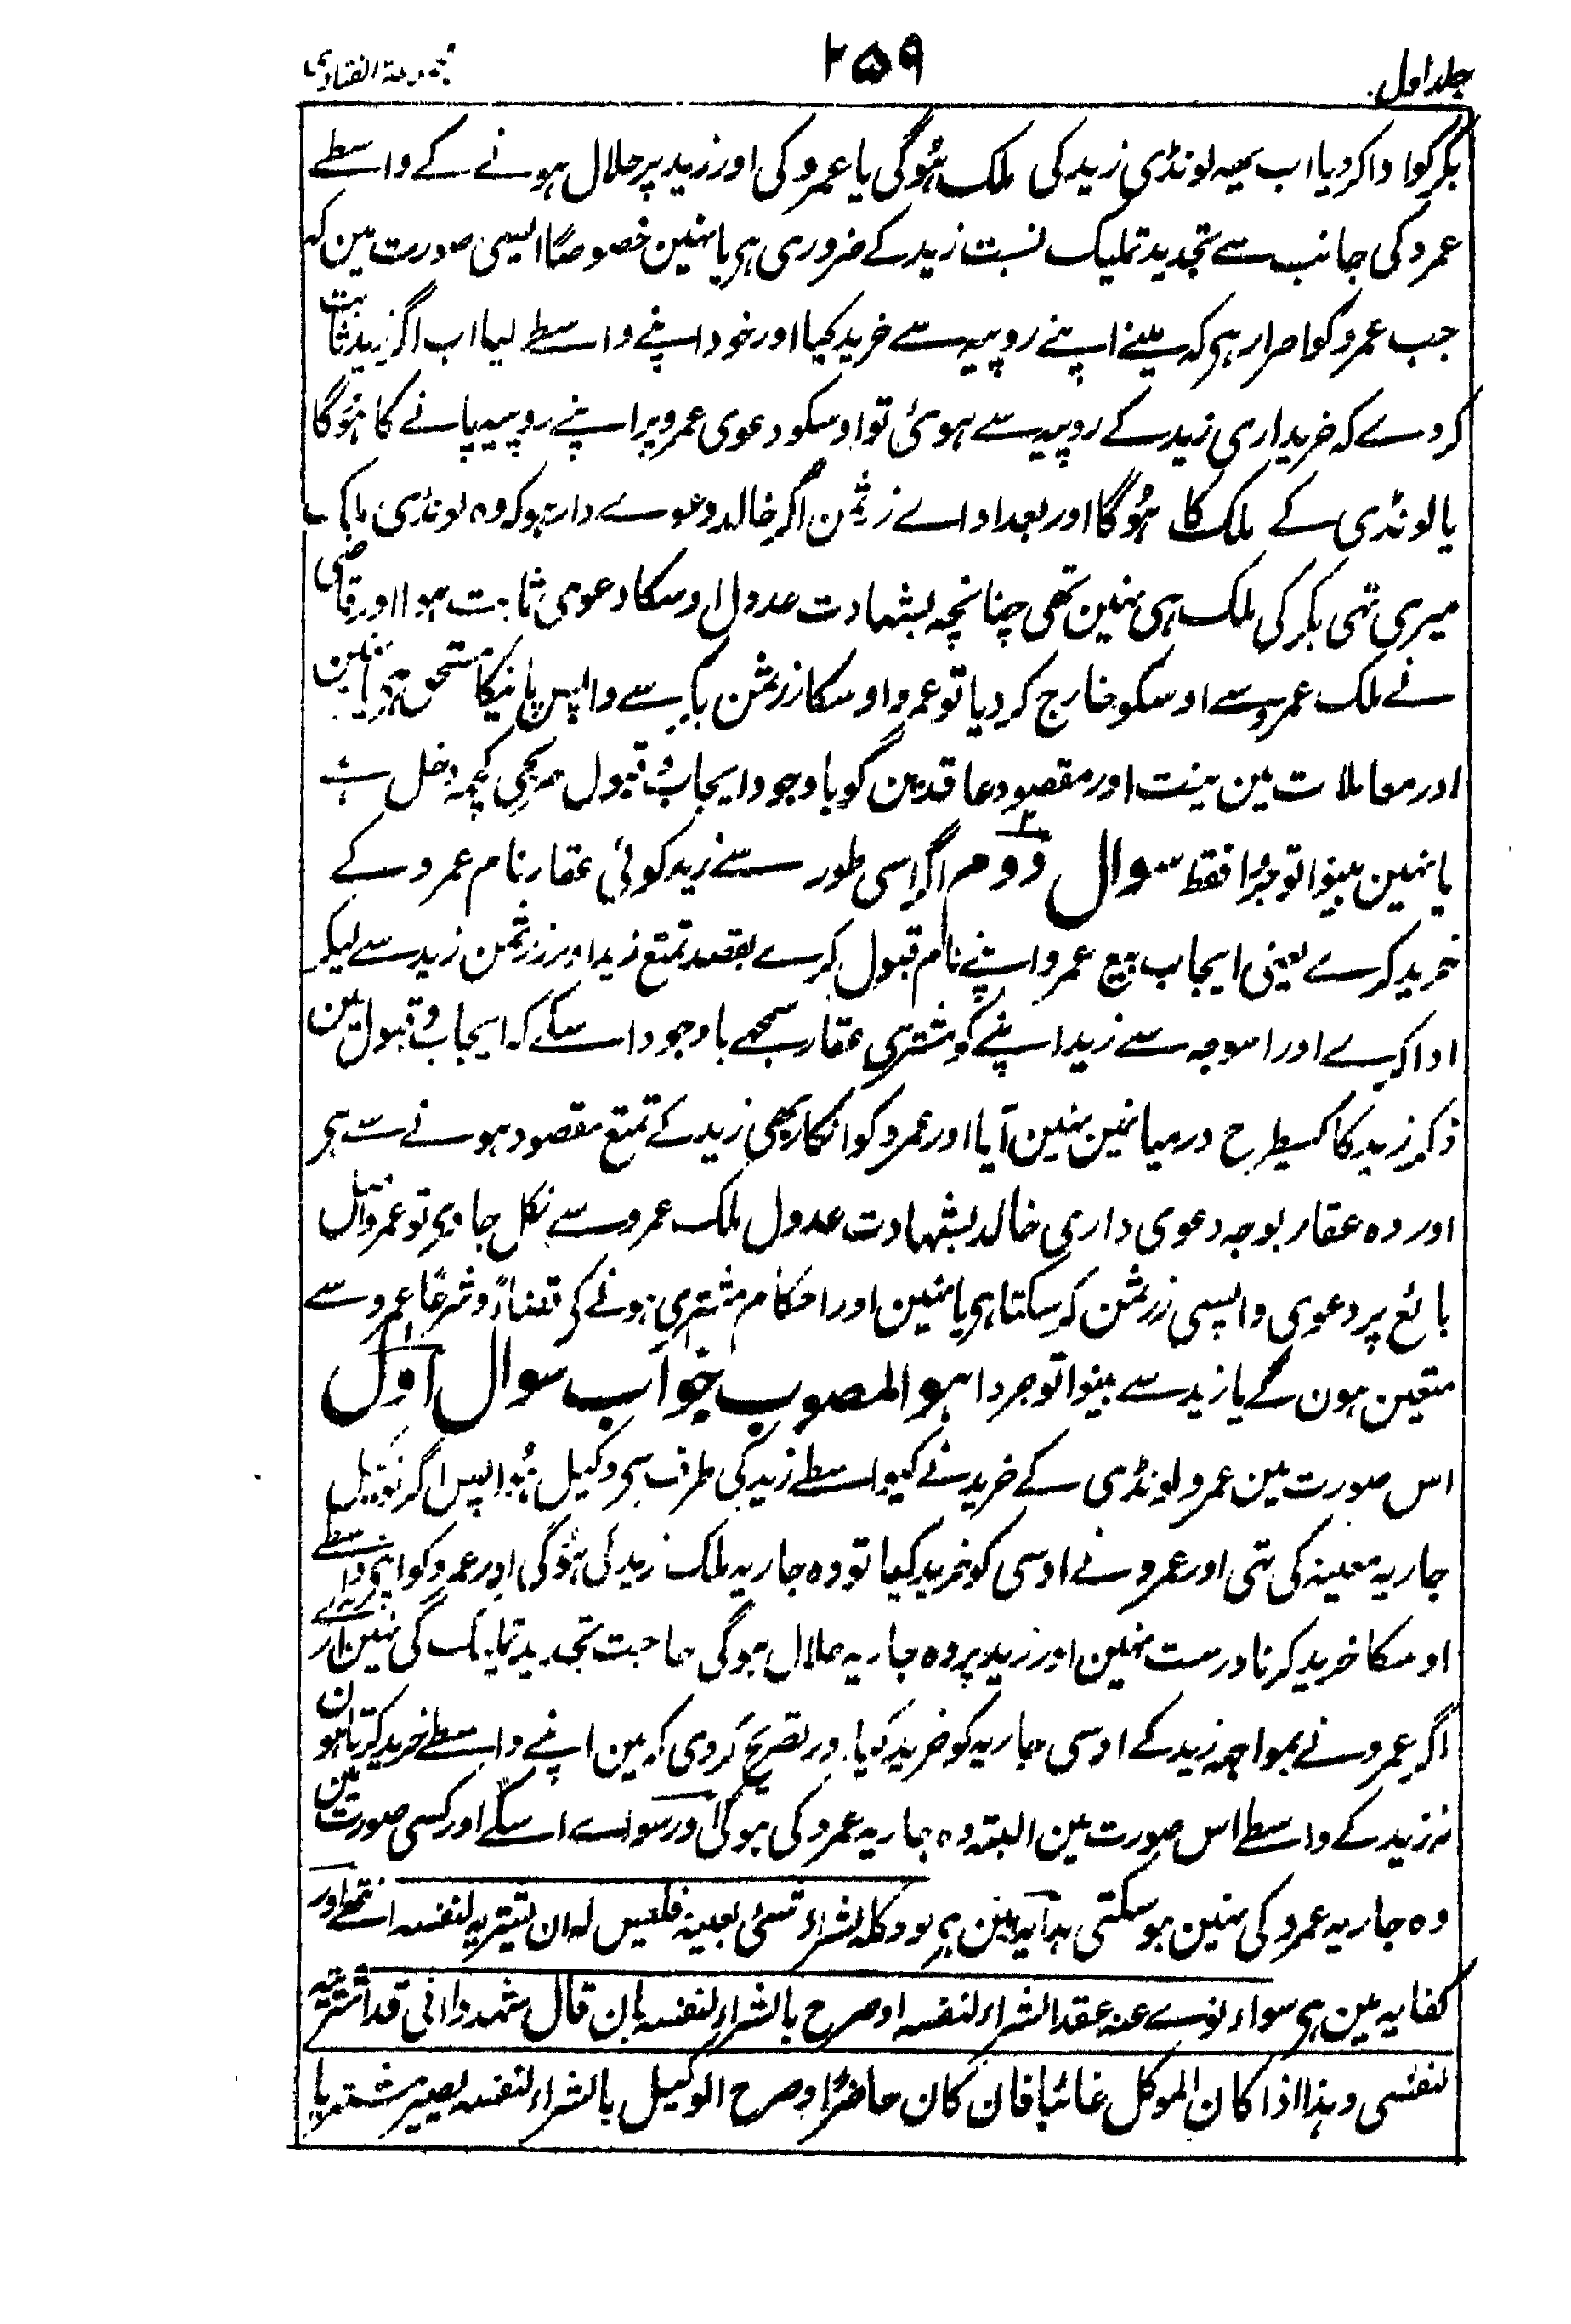 جلد اول
۲۵۹
مجموعۃ الفتاوی
بکر کو ادا کر دیا اب یہہ لونڈی زید کی ملک ہوگی یا عمرو کی اور زید پر حلال ہونے کے واسطے
عمرو کی جانب سے تجدید تملیک نسبت زید کے ضروری ہی یا نہین خصوصًا ایسی صورت مین کہ
جب عمرو کو اصرار ہی کہ مینے اپنے روپیہ سے خرید کیا اور خود اپنے واسطے لیا اب اگر زید ثابت
کر دے کہ خریداری زید کے روپیہ سے ہوئی تو اوسکو دعوی عمرو پر اپنے روپیہ پانے کا ہوگا
یا لونڈی کے ملک کا ہوگا اور بعد اداے زر ثمن اگر خالد دعوے دار ہو کہ وہ لونڈی
میری تہی بکر کی ملک ہی نہین تھی چنانچہ بشہادت عدول اوسکا دعوی ثابت ہوا اور قاضی
نے ملک عمرو سے اوسکو خارج کر دیا تو عمرو اوسکا زر ثمن بکر سے واپس پانیکا مستحق ہی یا نہین
اور معاملات مین نیت اور مقصود عاقدین کو باوجود ایجاب و قبول کچھ دخل ہے
یا نہین بینوا توجروا فقط سوال دوم اگر اسی طور سے زید کوئی عقار نام عمرو کے
خرید کرے یعنی ایجاب بیع عمرو اپنے نام قبول کرے بقصد تمتع زید اور زر ثمن زید سے لیکر
ادا کرے اور اسوجہ سے زید اپنے کو مشتری عقار سمجھے باوجود اسکے کہ ایجاب و قبول مین
ذکر زید کا کسیطرح درمیانمین نہین آیا اور عمرو کو انکار بھی زید کے تمتع مقصود ہونے سے ہی
اور وہ عقار بوجہ دعوی داری خالد بشہادت عدول ملک عمرو سے نکل جاوے تو عمرو
بائع پر دعوی واپسی زر ثمن کر سکتا ہی یا نہین اور احکام مشتری ہونے کے قضاءً و شرعًا عمرو سے
متعین ہون گے یا زید سے بینوا توجروا ہو المصوب جواب سوال اول
اس صورت مین عمرو لونڈی کے خریدنے کیواسطے زید کی طرف سے وکیل ہوا پس اگر توکیل
جاریہ معینہ کی تہی اور عمرو نے اوسی کو خرید کیا تو وہ جاریہ ملک زید کی ہوگی اور عمرو کو اپنے واسطے
اوسکا خرید کرنا درست نہین اور زید پر وہ جاریہ حلال ہوگی حاجت تجدید تملیک کی نہین
اگر عمرو نے بمواجہہ زید کے اوسی جاریہ کو خرید کیا اور تصریح کر دی کہ مین اپنے واسطے خرید کرتا ہون
نہ زید کے واسطے اس صورت مین البتہ وہ جاریہ عمرو کی ہوگی اور سواے اسکے اور کسی صورت مین
وہ جاریہ عمرو کی نہین ہو سکتی ہدایہ مین ہی لو وکلہ بشراء شئی بعینہ فلیس لہ ان یشتریہ لنفسہ انتہی اور
کفایہ مین ہی سواء نوے عند عقد الشراء لنفسہ او صرح بالشراء لنفسہ بان قال اشہدوا انی قد اشتریتہ
لنفسی وہذا اذا کان الموکل غائبا فان کان حاضرًا و صرح الوکیل بالشراء لنفسہ یصیر مشتریا